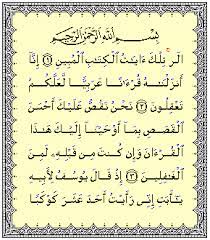 بِسْمِ ٱللَّهِ ٱلرَّحْمَٰنِ ٱلرَّحِيمِ
الٓر ۚ تِلْكَ ءَايَٰتُ ٱلْكِتَٰبِ ٱلْمُبِينِ ۝١ إِنَّآ
أَنزَلْنَٰهُ قُرْءَٰنًا عَرَبِيًّا لَّعَلَّكُمْ
تَعْقِلُونَ ۝٢ نَحْنُ نَقُصُّ عَلَيْكَ أَحْسَنَ
ٱلْقَصَصِ بِمَآ أَوْحَيْنَآ إِلَيْكَ هَٰذَا
ٱلْقُرْءَانَ وَإِن كُنتَ مِن قَبْلِهِۦ لَمِنَ
ٱلْغَٰفِلِينَ ۝٣ إِذْ قَالَ يُوسُفُ لِأَبِيهِ
يَٰٓأَبَتِ إِنِّى رَأَيْتُ أَحَدَ عَشَرَ كَوْكَبًا